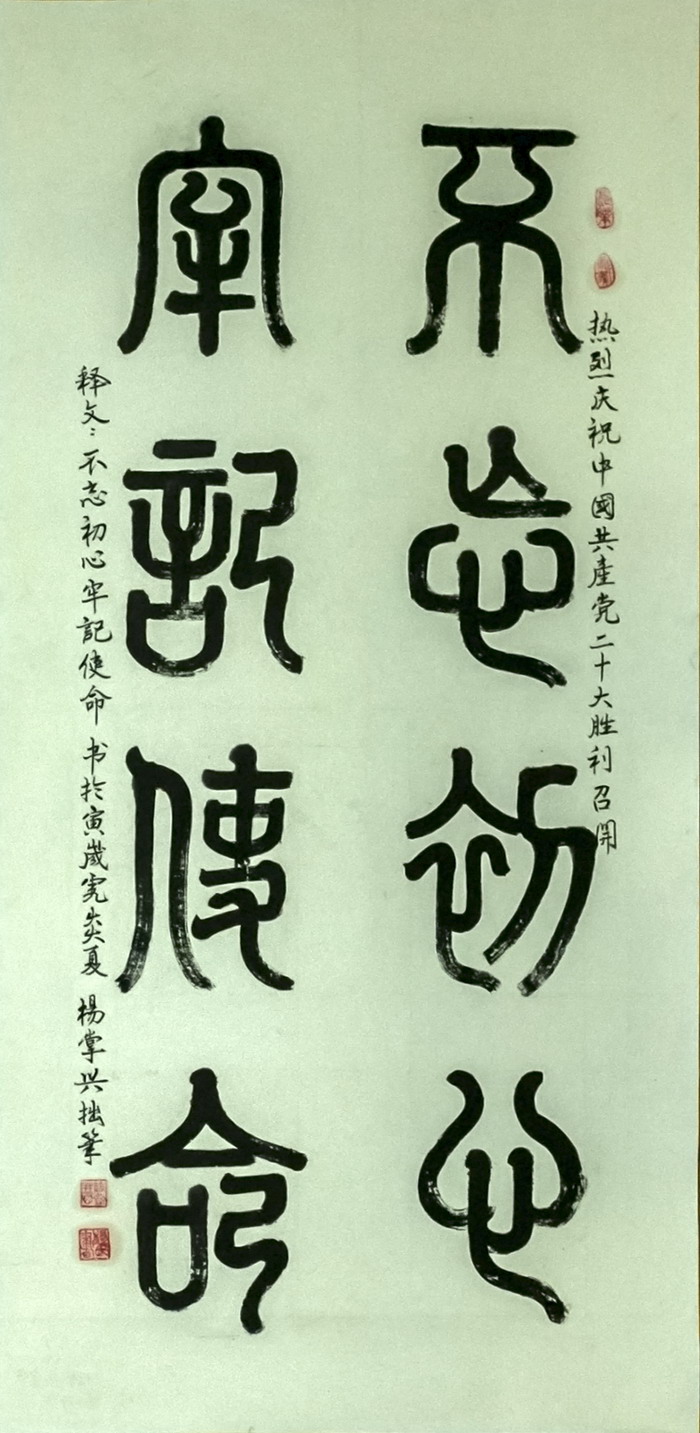 热烈庆祝中國共產党二十大胜利召開
不忘初心
牢記使命
释文：不忘初心牢記使命 书於寅歲完炎夏 楊掌兴拙筆